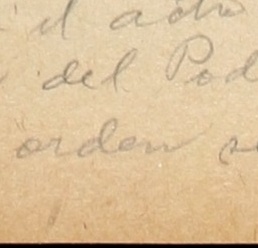 el acto
del Pod
orden se